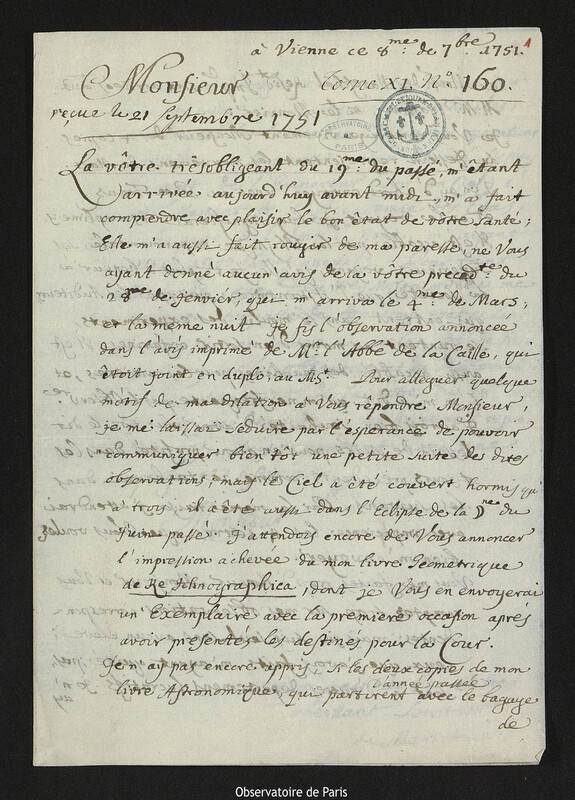 à Vienne ce 8me de 7bre 1751. 1
Monsieur
tome XI. No 160.
reçue le 21 septembre 1751
OBSERVATOIRE DE PARIS
La vôtre trèsobligeant du 19me du passé, m'êtant
arrivée aujourd'huy avant midi, m'a fait
comprendre avec plaisir le bon êtat de vôtre santé;
Elle m'a aussi fait rougir de ma paresse, ne Vous
ayant donné aucun avis de la vôtre precedte du
28me de Janvier, qui m'arriva le 4me de Mars;
et la meme nuit je fis l'observation annoncée
dans l'avis imprime de Mr. l'Abbé de la Caille, qui
êtoit joint en duplo au Mst. Pour alleguer quelque
motif de ma dilation à Vous rêpondre Monsieur,
je me laissai seduire par l'esperance de pouvoir
communiquer bien tôt une petite suite de dites
observations, mais le Ciel a êté couvert hormis qu'
à trois il a êté aussi dans l'Eclipse de la ☽ne du
Juin passé. J'attendois encore de Vous annoncer
l'impression achevée du mon livre Geometrique
de Re Ichnographica, dont je Vous en envoyerai
un' Exemplaire avec la premiere occasion après
avoir presentes les destinés pour la Cour.
Je n'ay pas encore appris, si les deux copies de mon
livre Astronomique, qui partirent l'année passée avec le bagage
de
Observatoire de Paris